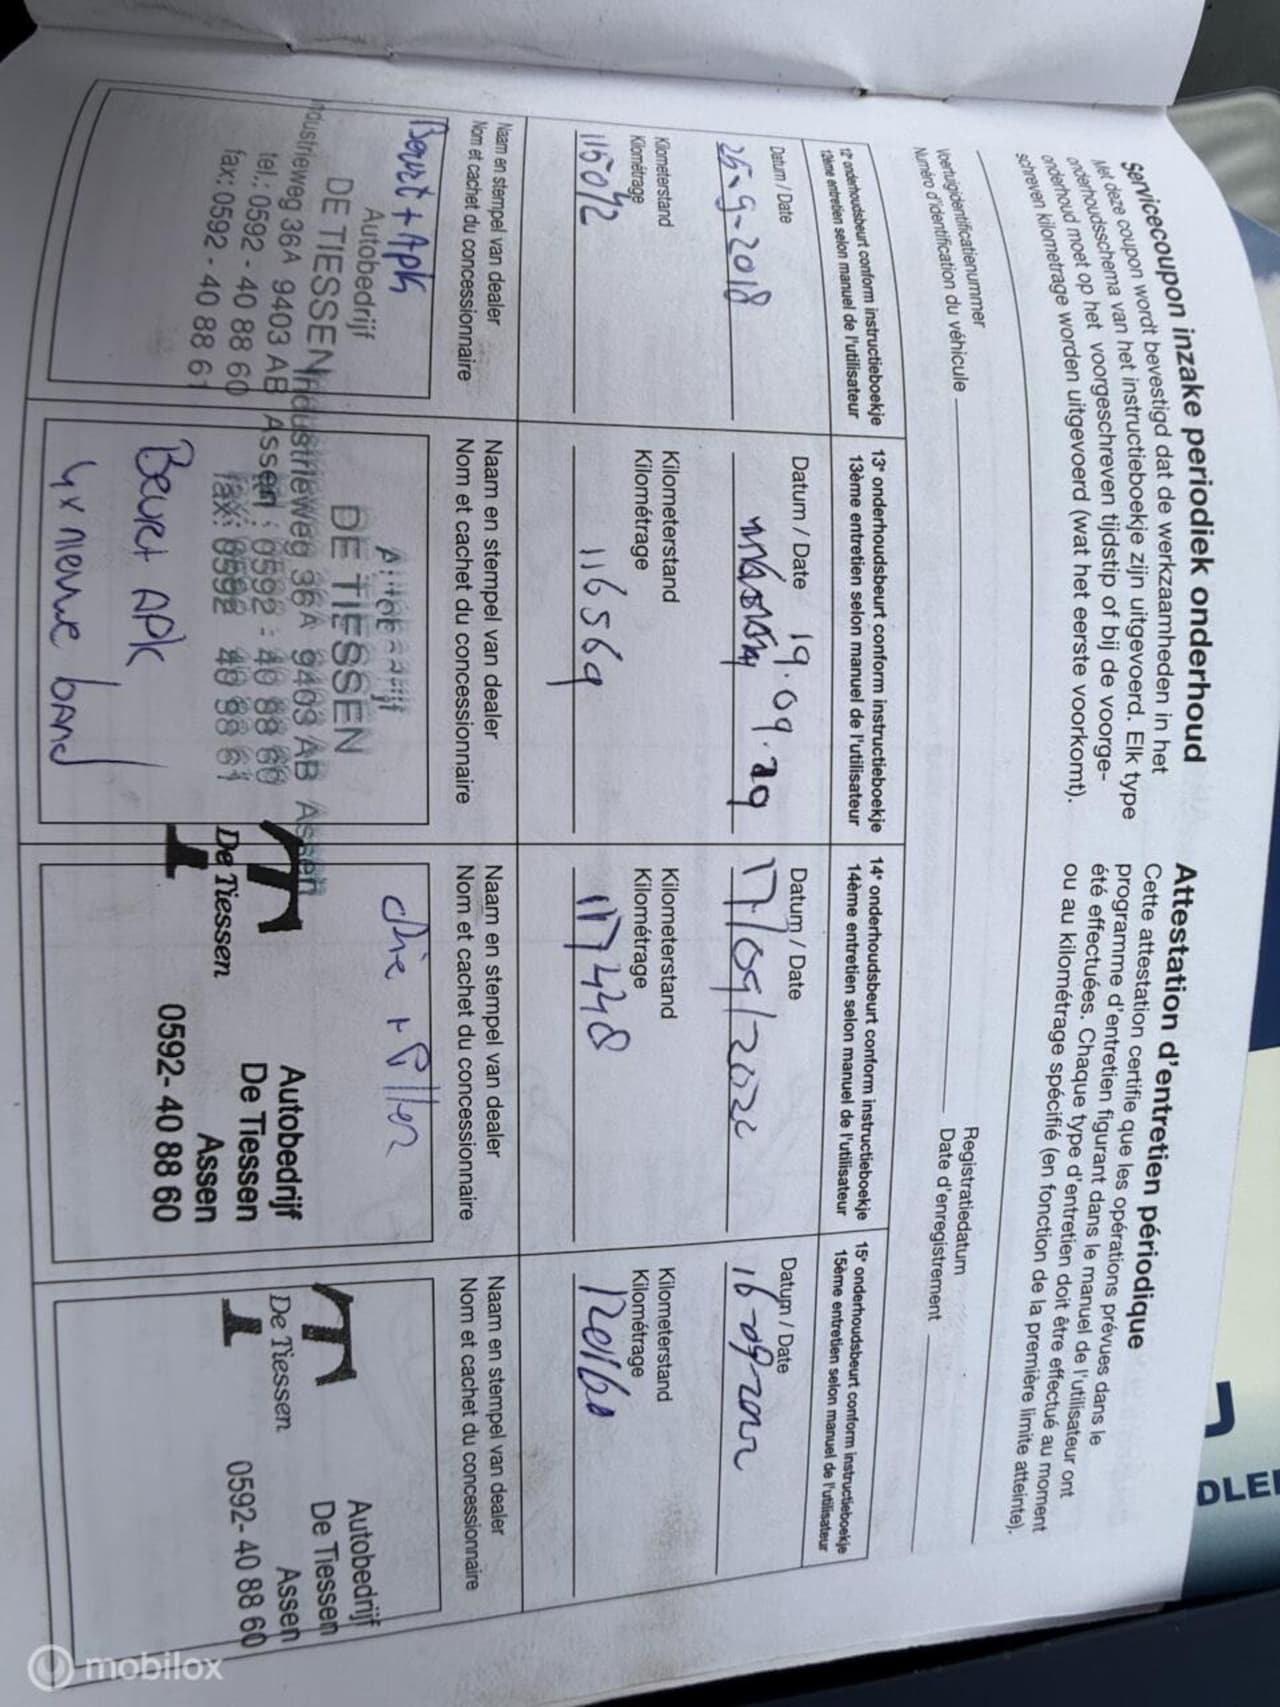 Servicecoupon inzake periodiek onderhoud
Met deze coupon wordt bevestigd dat de werkzaamheden in het
onderhoudsschema van het instructieboekje zijn uitgevoerd. Elk type
onderhoud moet op het voorgeschreven tijdstip of bij de voorge-
schreven kilometrage worden uitgevoerd (wat het eerste voorkomt).
Attestation d'entretien périodique
Cette attestation certifie que les opérations prévues dans le
programme d'entretien figurant dans le manuel de l'utilisateur ont
été effectuées. Chaque type d'entretien doit être effectué au moment
ou au kilométrage spécifié (en fonction de la première limite atteinte).
Voertuigidentificatienummer
Numéro d'identification du véhicule
Registratiedatum
Date d'enregistrement
12e onderhoudsbeurt conform instructieboekje
12ème entretien selon manuel de l'utilisateur
Datum / Date
25-9-2018
Kilometerstand
Kilométrage
115092
Naam en stempel van dealer
Nom et cachet du concessionnaire
Beurt + Apk
Autobedrijf
DE TIESSEN
Industrieweg 36A 9403 AB Assen
tel.: 0592 - 40 88 60
fax: 0592 - 40 88 61
13e onderhoudsbeurt conform instructieboekje
13ème entretien selon manuel de l'utilisateur
Datum / Date
19.09.29
Kilometerstand
Kilométrage
116569
Naam en stempel van dealer
Nom et cachet du concessionnaire
DE TIESSEN
Industrieweg 36A 9403 AB Assen
: 0592 - 40 88 60
fax: 0592 40 88 61
Beurt APK
4x nieuwe band
14e onderhoudsbeurt conform instructieboekje
14ème entretien selon manuel de l'utilisateur
Datum / Date
Kilometerstand
Kilométrage
117448
Naam en stempel van dealer
Nom et cachet du concessionnaire
olie + filter
De Tiessen
Autobedrijf
De Tiessen
Assen
0592- 40 88 60
15e onderhoudsbeurt conform instructieboekje
15ème entretien selon manuel de l'utilisateur
Datum / Date
16-09-2022
Kilometerstand
Kilométrage
120160
Naam en stempel van dealer
Nom et cachet du concessionnaire
De Tiessen
Autobedrijf
De Tiessen
Assen
0592- 40 88 60
DLE
mobilox